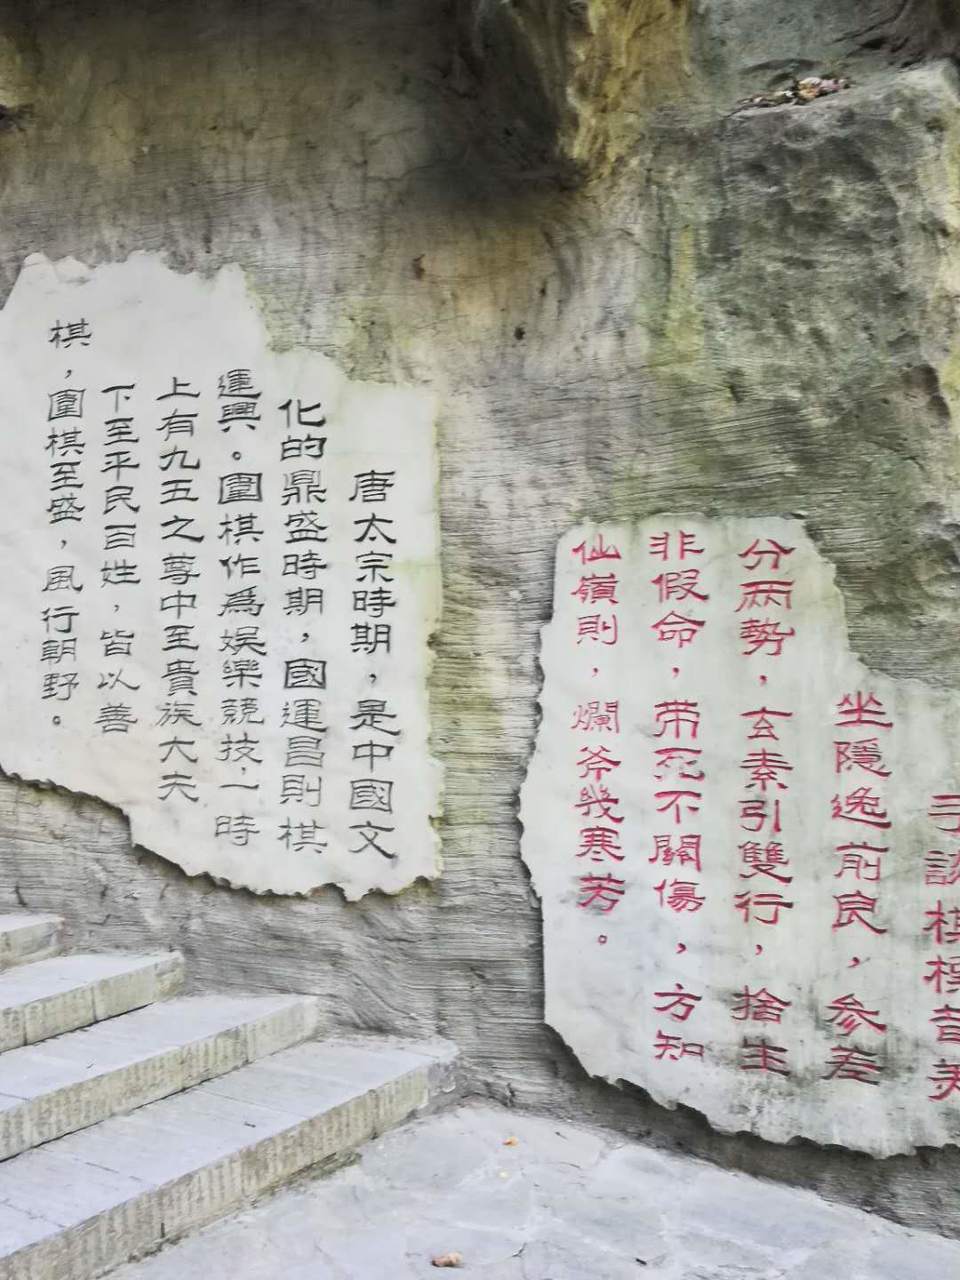 手談棋標昔美
坐隱逸前良，参差
分两勢，玄素引雙行，捨生
非假命，带死不關傷，方知
仙嶺則，爛斧幾寒芳。
唐太宗時期，是中國文
化的鼎盛時期，國運昌則棋
運興。圍棋作爲娛樂競技，一時
上有九五之尊中至貴族大夫
下至平民百姓，皆以善
棋，圍棋至盛，風行朝野。